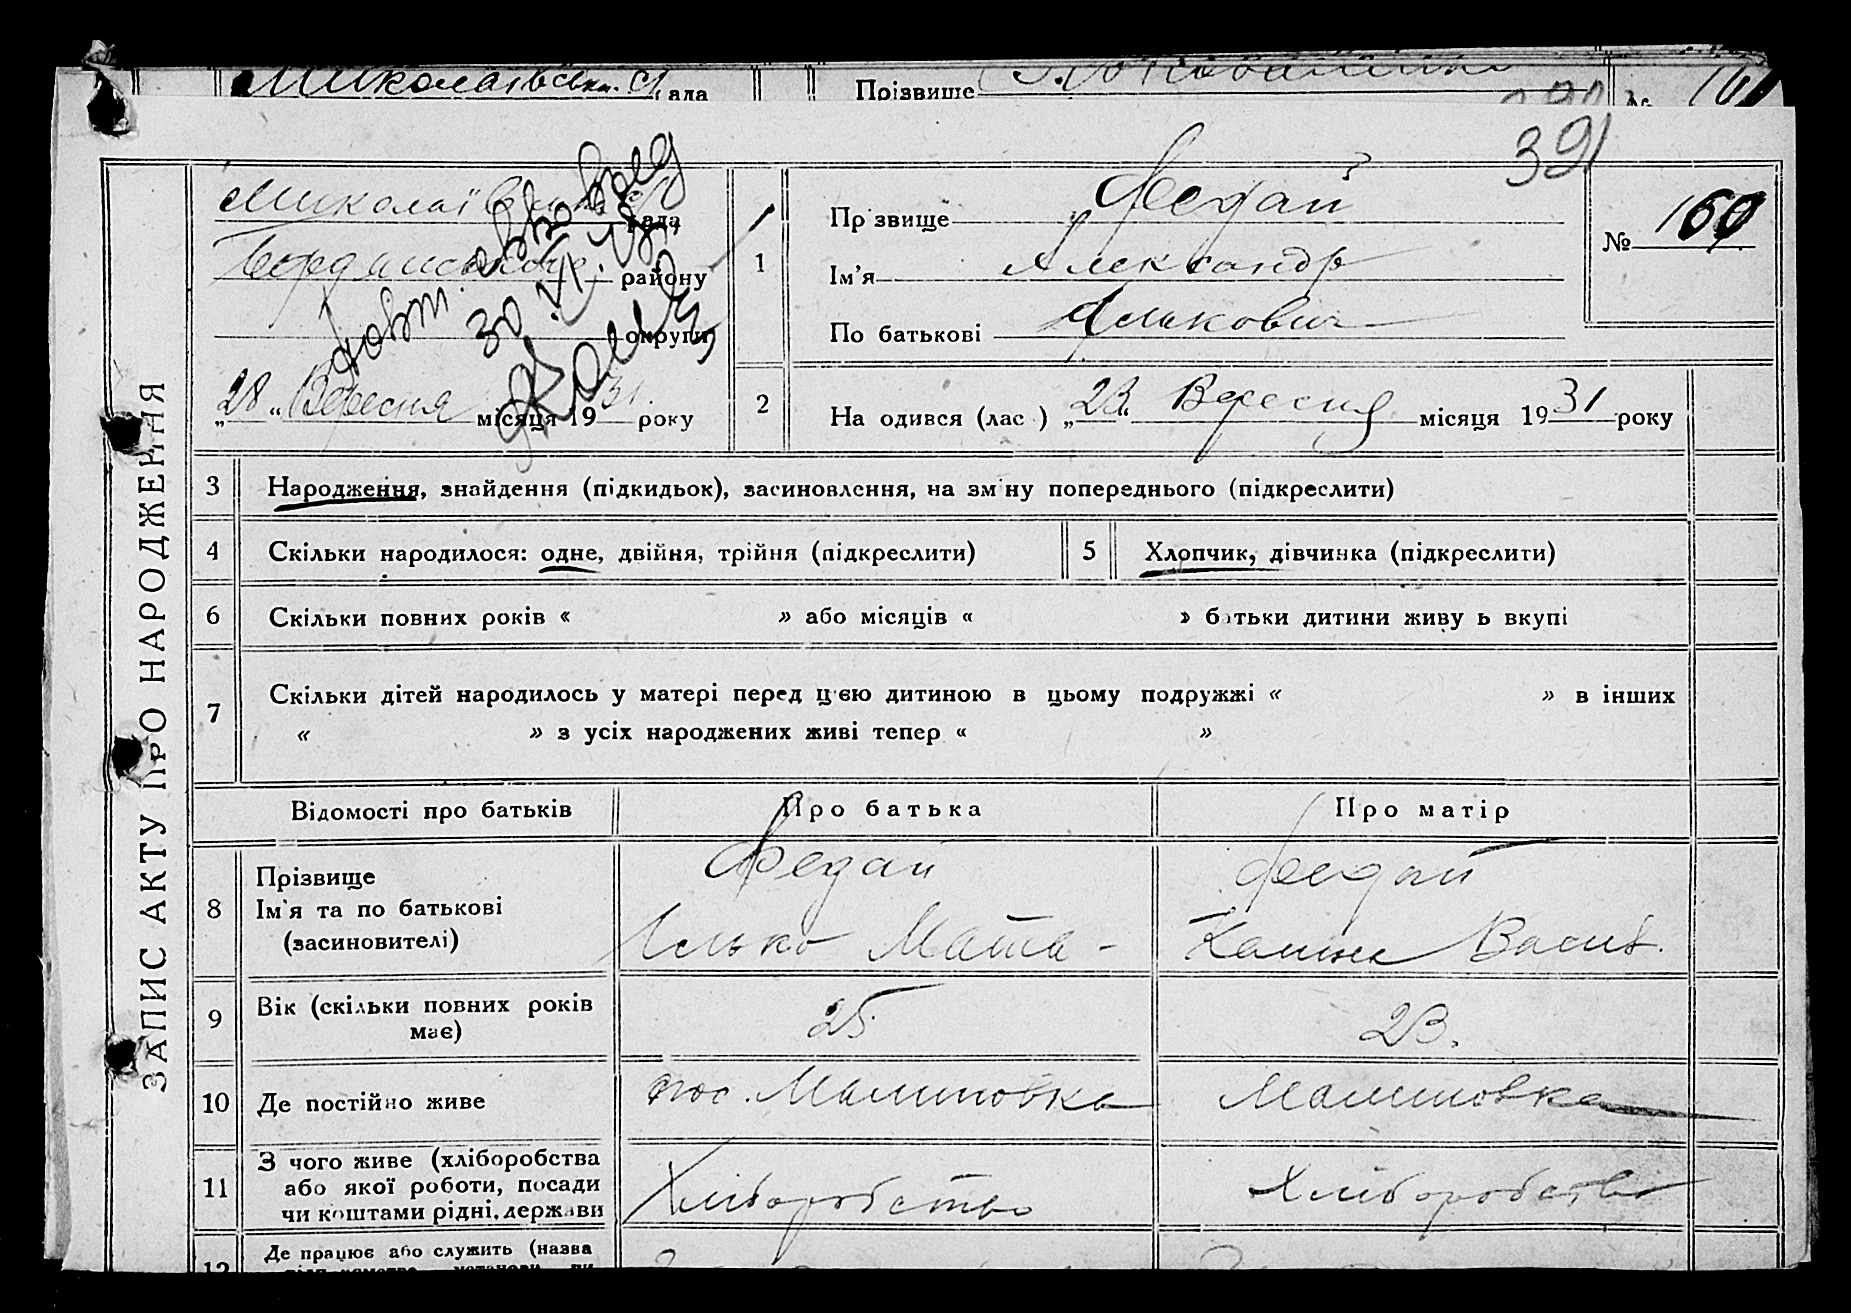 Миколаївська с/ ада
Прізвище
№ 161
391
ЗАПИС АКТУ ПРО НАРОДЖЕННЯ
Миколаївська с/р ада
Бердянського району
округи
30.VI.
„28„ Вересня місяця 1931. року
1
Пр звище Федай
Ім'я Александр
По батькові Ількович
№ 160
2
На одився (лас ) „23„ Вересня місяця 1931 року
3 Народження, знайдення (підкидьок), засиновлення, на зм ну попереднього (підкреслити)
4 Скільки народилося: одне, двійня, трійня (підкреслити)
5 Хлопчик, дівчинка (підкреслити)
6 Скільки повних років « » або місяців « » батьки дитини живу ь вкупі
7 Скільки дітей народилось у матері перед цією дитиною в цьому подружжі « » в інших
« » з усіх народжених живі тепер « »
Відомості про батьків Про батька Про матір
8 Прізвище Федай Федай
Ім'я та по батькові
(засиновителі) Ілько Матв- Васил.
9 Вік (скільки повних років
має) 25. 23.
10 Де постійно живе пос. Малиновка Малиновка
11 З чого живе (хліборобства
або якої роботи, посади
чи коштами рідні, держави Хліборобство Хліборобство
12 Де працює або служить (назва